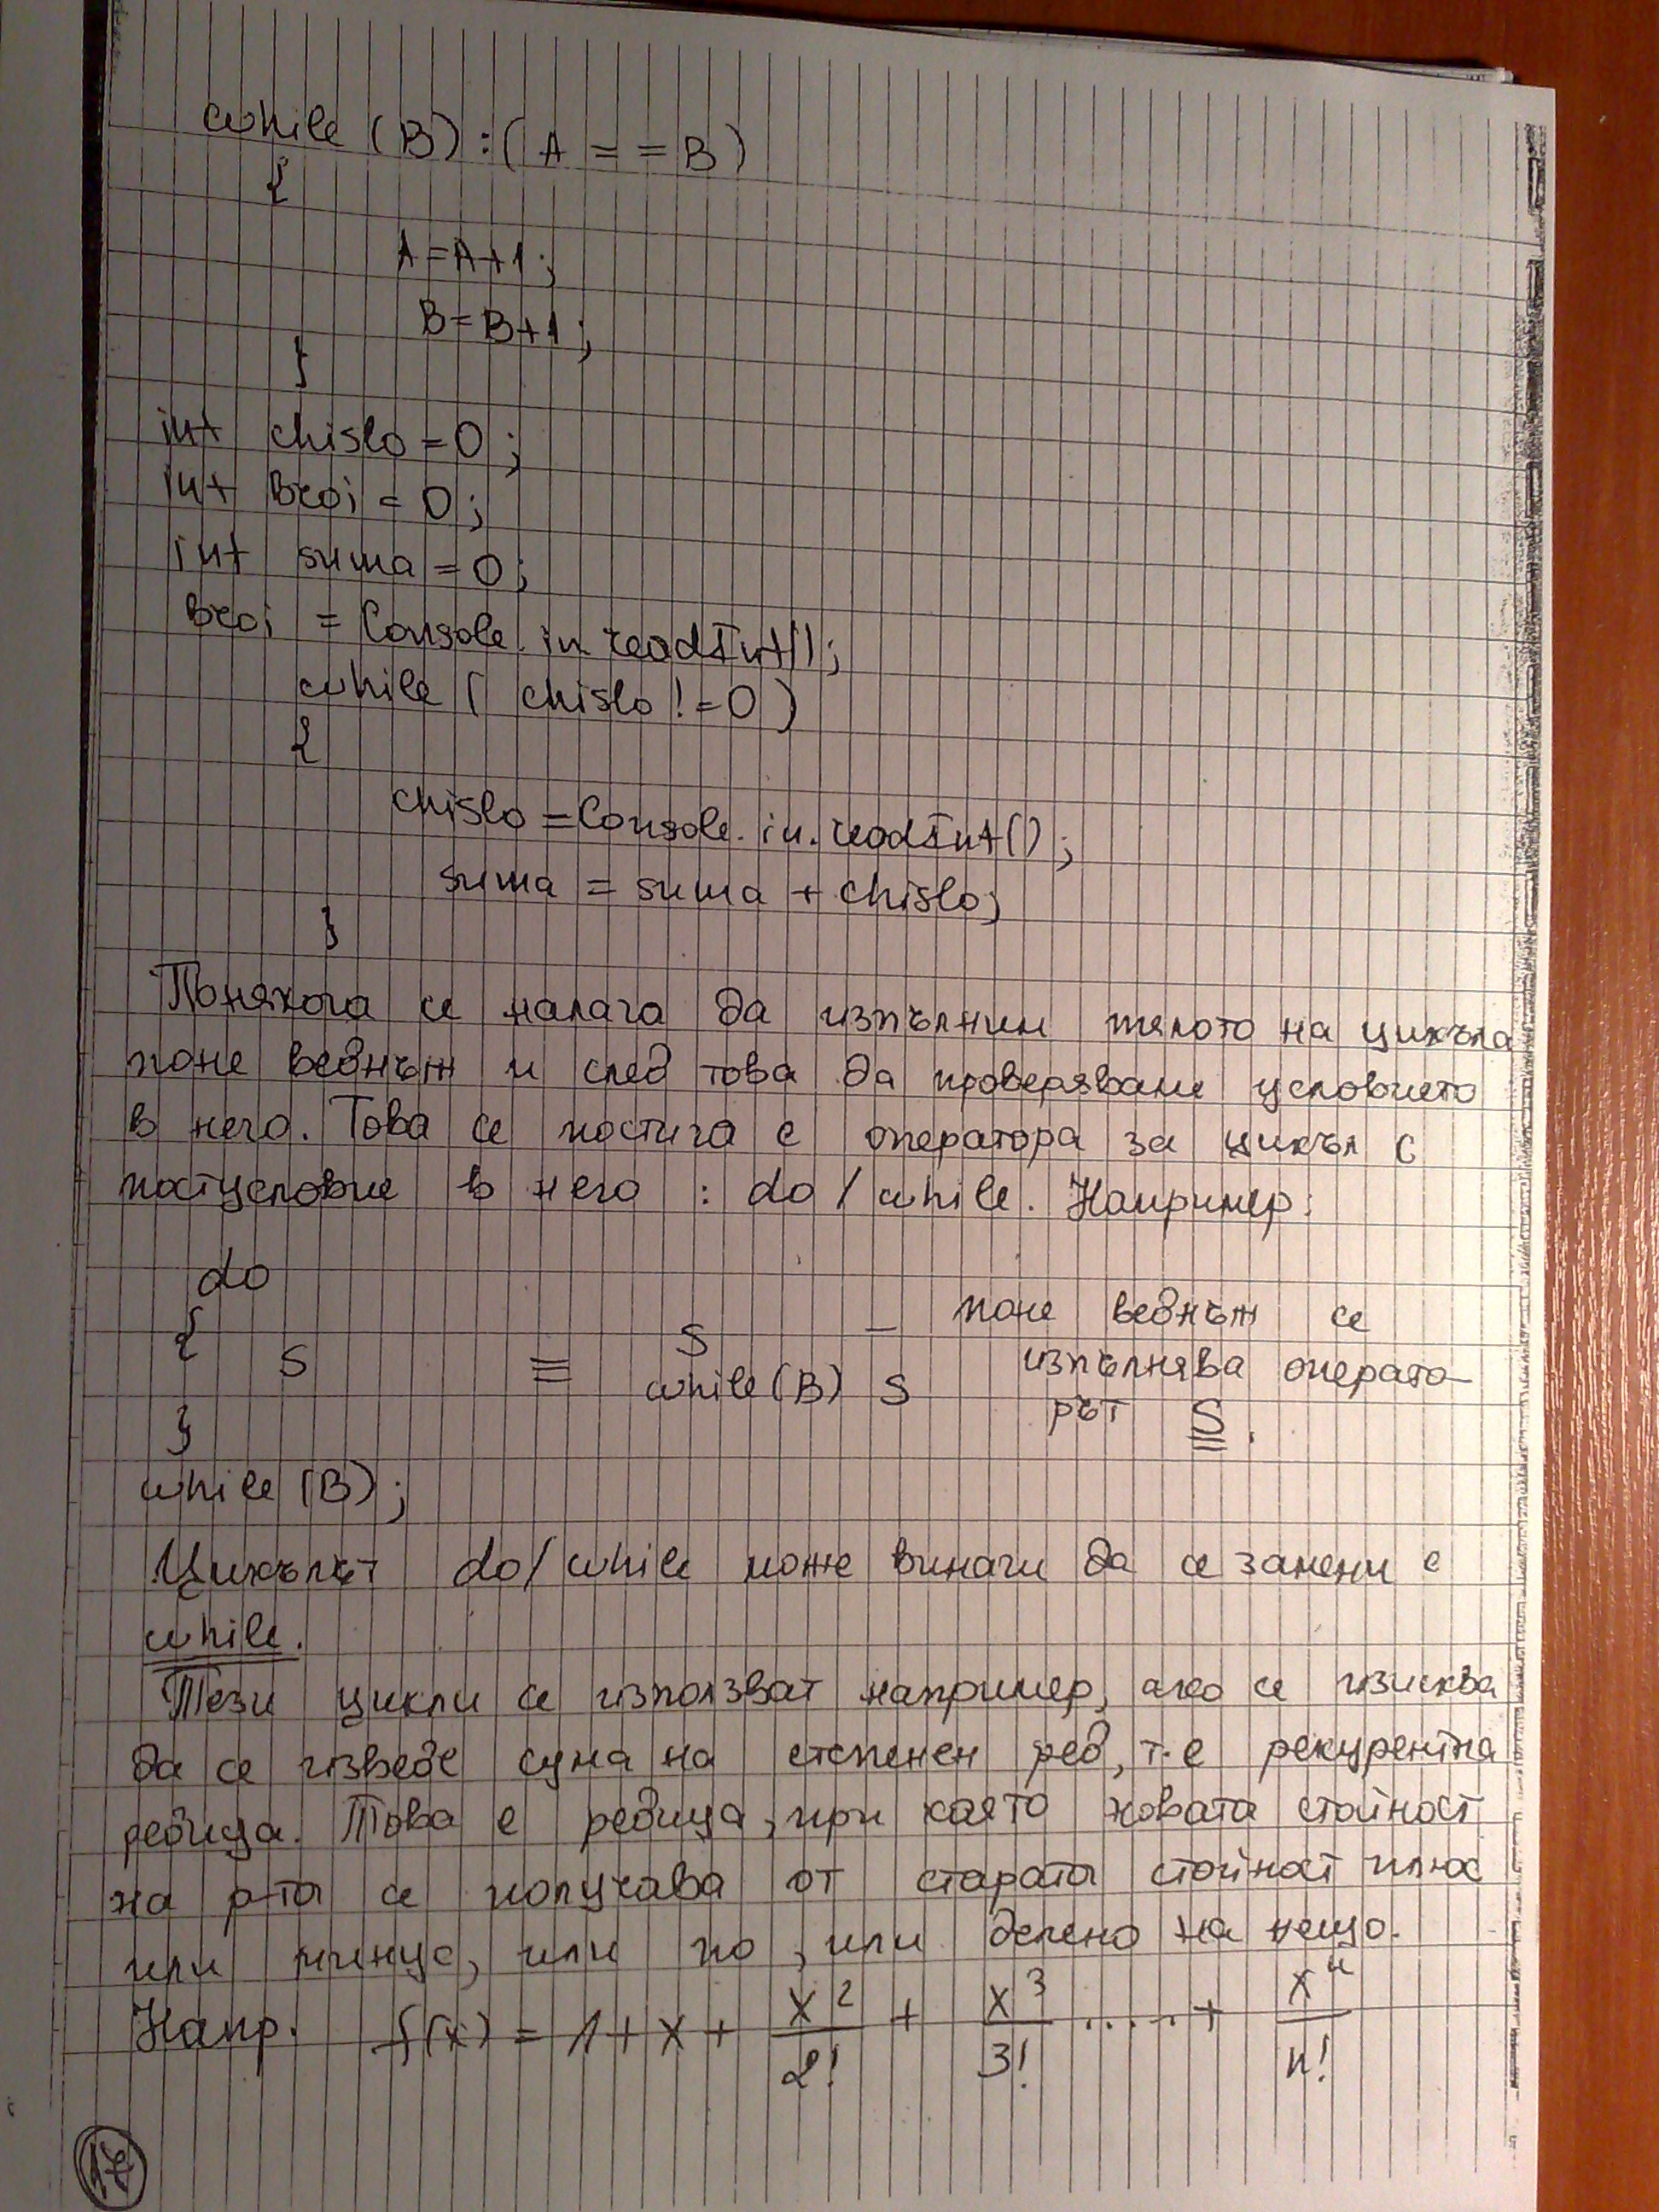 while (B) : ( A = = B )
{
A = A + 1 ;
B = B + 1 ;
}
int chislo = 0 ;
int broi = 0 ;
int suma = 0 ;
broi = Console. in. readInt() ;
while ( chislo != 0 )
{
chislo = Console. in. readInt() ;
suma = suma + chislo ;
}
Понякога се налага да изпълним тялото на цикъла
поне веднъж и след това да проверяваме условието
в него. Това се постига с оператора за цикъл с
постусловие в него : do / while. Например:
do
{ S – поне веднъж се
S ≡ while (B) S изпълнява операто-
} рът S .
while (B) ;
Цикълът do / while може винаги да се замени с
while.
Тези цикли се използват например, ако се изисква
да се изведе сума на степенен ред, т.е рекурентна
редица. Това е редица, при която новата стойност
на р-та се получава от старата стойност плюс
или минус, или по , или делено на нещо.
Напр. f(x) = 1 + x + x²/2! + x³/3! ..... + xⁿ/n!
17